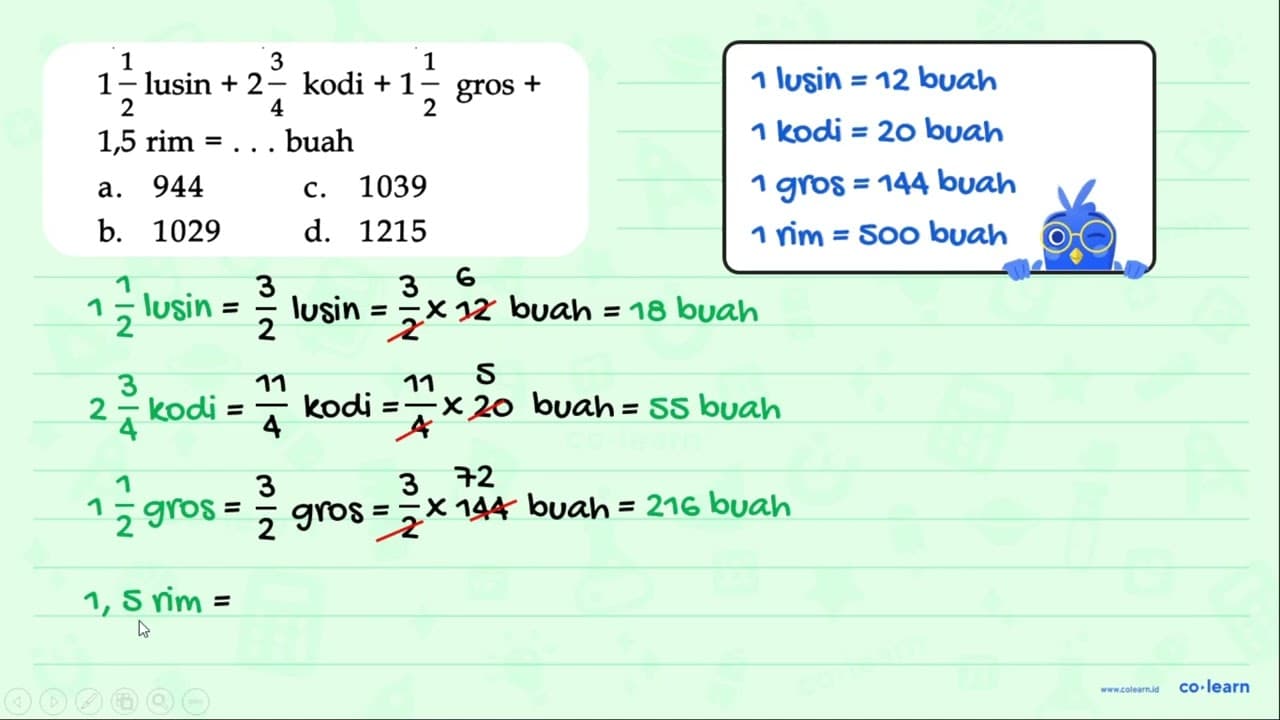 1 1/2 lusin + 2 3/4 kodi + 1 1/2 gros +
1,5 rim = . . . buah
a. 944 c. 1039
b. 1029 d. 1215
1 lusin = 12 buah
1 kodi = 20 buah
1 gros = 144 buah
1 rim = 500 buah
1 1/2 lusin = 3/2 lusin = 3/2 x 12 6 buah = 18 buah
2 3/4 kodi = 11/4 kodi = 11/4 x 20 5 buah = 55 buah
1 1/2 gros = 3/2 gros = 3/2 x 144 72 buah = 216 buah
1, 5 rim =
www.colearn.id co·learn